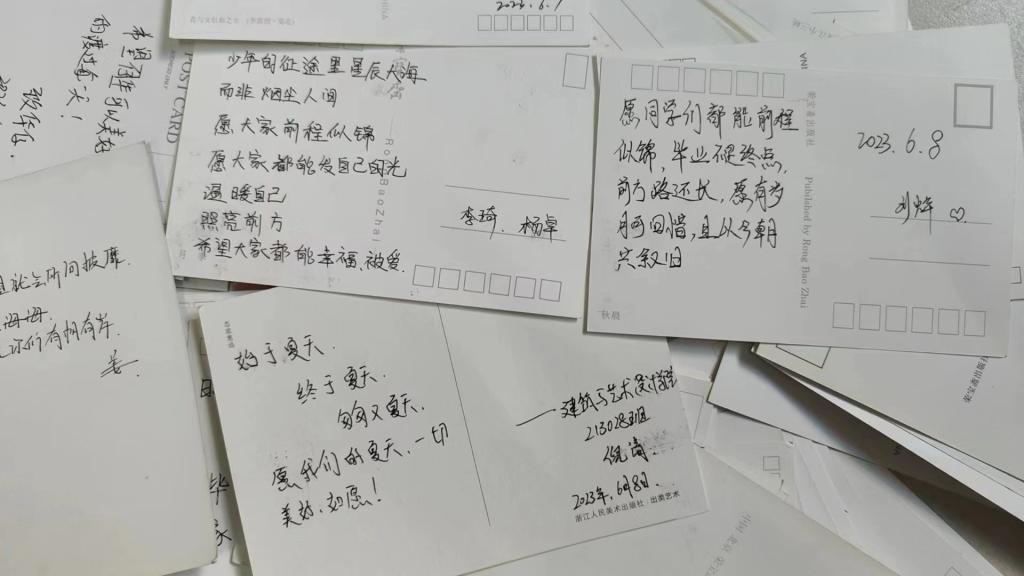 2023.6.
POST CARD
希望
的
一天！
少年的征途里星辰大海
而非烟尘人间
愿大家前程似锦
愿大家都能发自己的光
温暖自己
照亮前方
希望大家都能幸福、被爱.
李琦、杨卓
愿同学们都能前程
似锦，毕业不是终点，
前方路还长，愿有岁
月可回惜，且以今朝
共叙旧
2023.6.8
刘烨
荣宝斋出版社
Published by Rong Bao Zhai
秋晨
所向披靡.
你们有帆有岸.
姜.
始于夏天.
终于夏天.
匆匆又夏天.
愿我们的夏天、一切
美好、如愿！
——建筑与艺术设计学院
213028班
倪
2023年.6月8日.
浙江人民美术出版社|出类艺术
毕